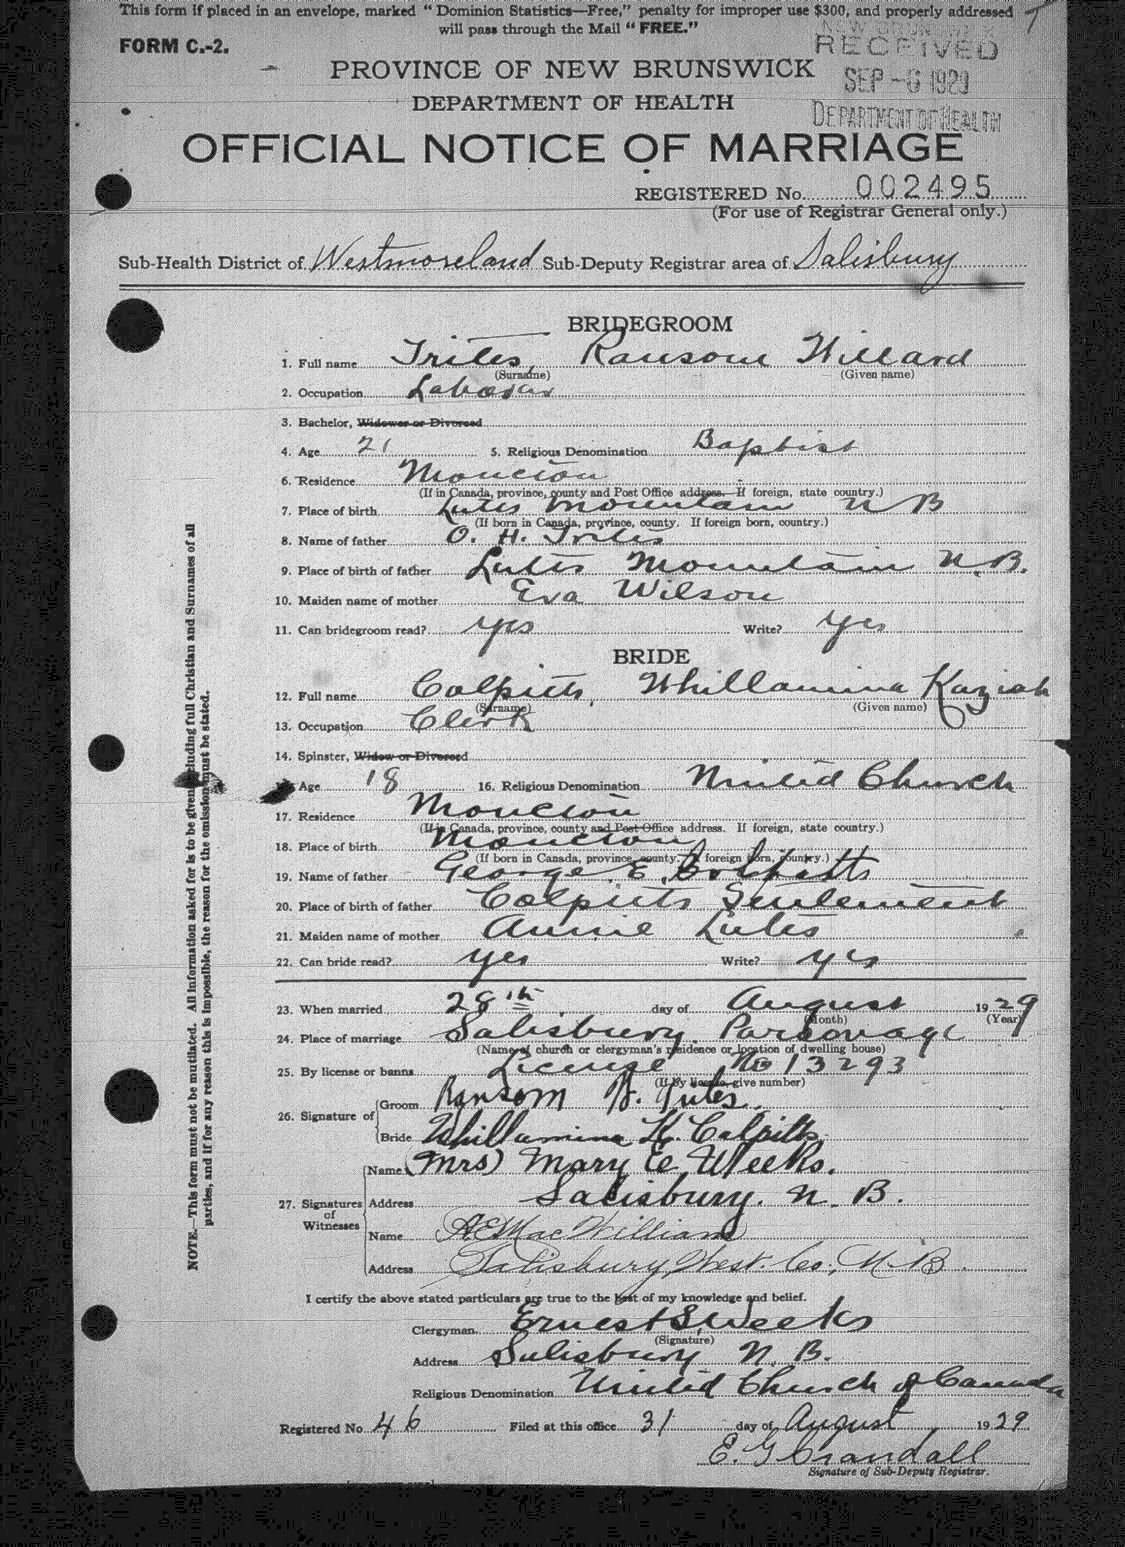 This form if placed in an envelope, marked “ Dominion Statistics—Free,” penalty for improper use $300, and properly addressed
will pass through the Mail “ FREE.”
FORM C.-2.
RECEIVED
SEP -6 1929
DEPARTMENT OF HEALTH
PROVINCE OF NEW BRUNSWICK
DEPARTMENT OF HEALTH
OFFICIAL NOTICE OF MARRIAGE
REGISTERED No. 002495
(For use of Registrar General only.)
Sub-Health District of Westmoreland Sub-Deputy Registrar area of Salisbury
BRIDEGROOM
1. Full name Trites Ransom Willard
(Surname) (Given name)
2. Occupation Laborer
3. Bachelor, Widower or Divorced
4. Age 21 5. Religious Denomination Baptist
6. Residence Moncton
(If in Canada, province, county and Post Office address. If foreign, state country.)
7. Place of birth Lutes Mountain N B
(If born in Canada, province, county. If foreign born, country.)
8. Name of father O. H. Trites
9. Place of birth of father Lutes Mountain N.B.
10. Maiden name of mother Eva Wilson
11. Can bridegroom read? yes Write? yes
BRIDE
12. Full name Colpitts, Whillamina Kaziah
(Surname) (Given name)
13. Occupation Clerk
14. Spinster, Widow or Divorced
Age 18 16. Religious Denomination United Church
17. Residence Moncton
(If in Canada, province, county and Post Office address. If foreign, state country.)
18. Place of birth Moncton
(If born in Canada, province, county. If foreign born, country.)
19. Name of father George E. Colpitts
20. Place of birth of father Colpitts Settlement
21. Maiden name of mother Annie Lutes
22. Can bride read? yes Write? yes
23. When married 28th day of August 1929
(Month) (Year)
24. Place of marriage Salisbury Parsonage
(Name of church or clergyman's residence or location of dwelling house)
25. By license or banns License No 13293
(If by license, give number)
26. Signature of
Groom Ransom W. Trites.
Bride Whillamina K. Colpitts
27. Signatures of Witnesses
Name (Mrs) Mary E Weeks.
Address Salisbury. N. B.
Name A E MacWilliam
Address Salisbury, West. Co., N. B.
I certify the above stated particulars are true to the best of my knowledge and belief.
Clergyman Ernest S Weeks
(Signature)
Address Salisbury N. B.
Religious Denomination United Church of Canada
Registered No 46 Filed at this office 31 day of August 1929
E. G Crandall
Signature of Sub-Deputy Registrar.
NOTE.—This form must not be mutilated. All information asked for is to be given including full Christian and Surnames of all
parties, and if for any reason this is impossible, the reason for the omission must be stated.